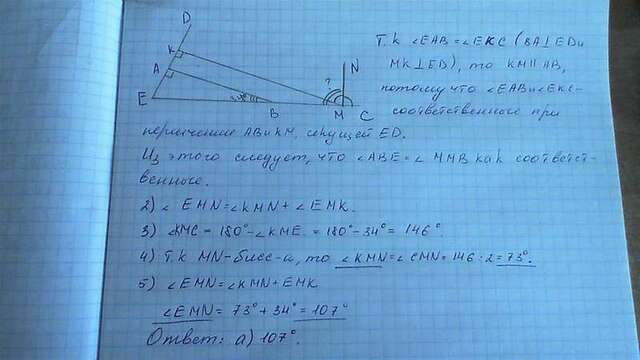 D
K
A
E
B
M
C
N
?
Т.к ∠EAB=∠EKC (BA⊥ED и
MK⊥ED), то KM∥AB,
потому что ∠EAB и ∠EKC-
соответственного при
пересечение AB и KM, секущей ED.
Из этого следует, что ∠ABE=∠MMB как соответст-
венные.
2) ∠ EMN=∠KMN+∠EMK.
3) ∠KMC=180°-∠KME.=180°-34°=146°
4) Т.к MN-бисс-а, то ∠KMN=∠CMN=146:2=73°.
5) ∠EMN=∠KMN+EMK
∠EMN=73°+34°=107°
Ответ: а) 107°.